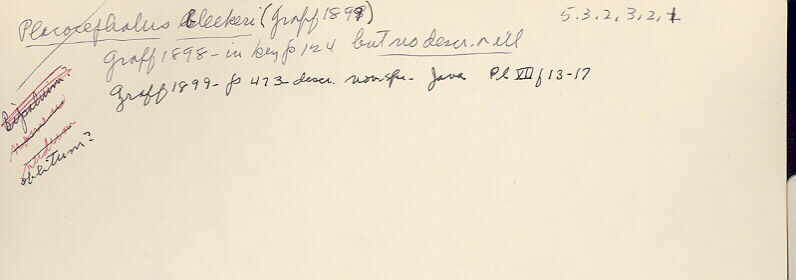 Placocephalus bleekeri (Graff 1899)
5.3.2,3.2,1
Graff 1898 - in key p 124 but no descr. or ill
Graff 1899 - p 473 descr. nov. sp. - Java Pl VII f 13-17
Bipalium
oblitum?